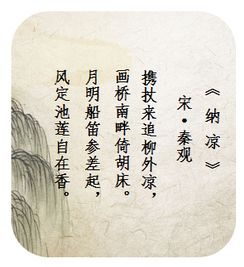 《纳凉》
宋·秦观
携扙来追柳外凉，
画桥南畔倚胡床。
月明船笛参差起，
风定池莲自在香。